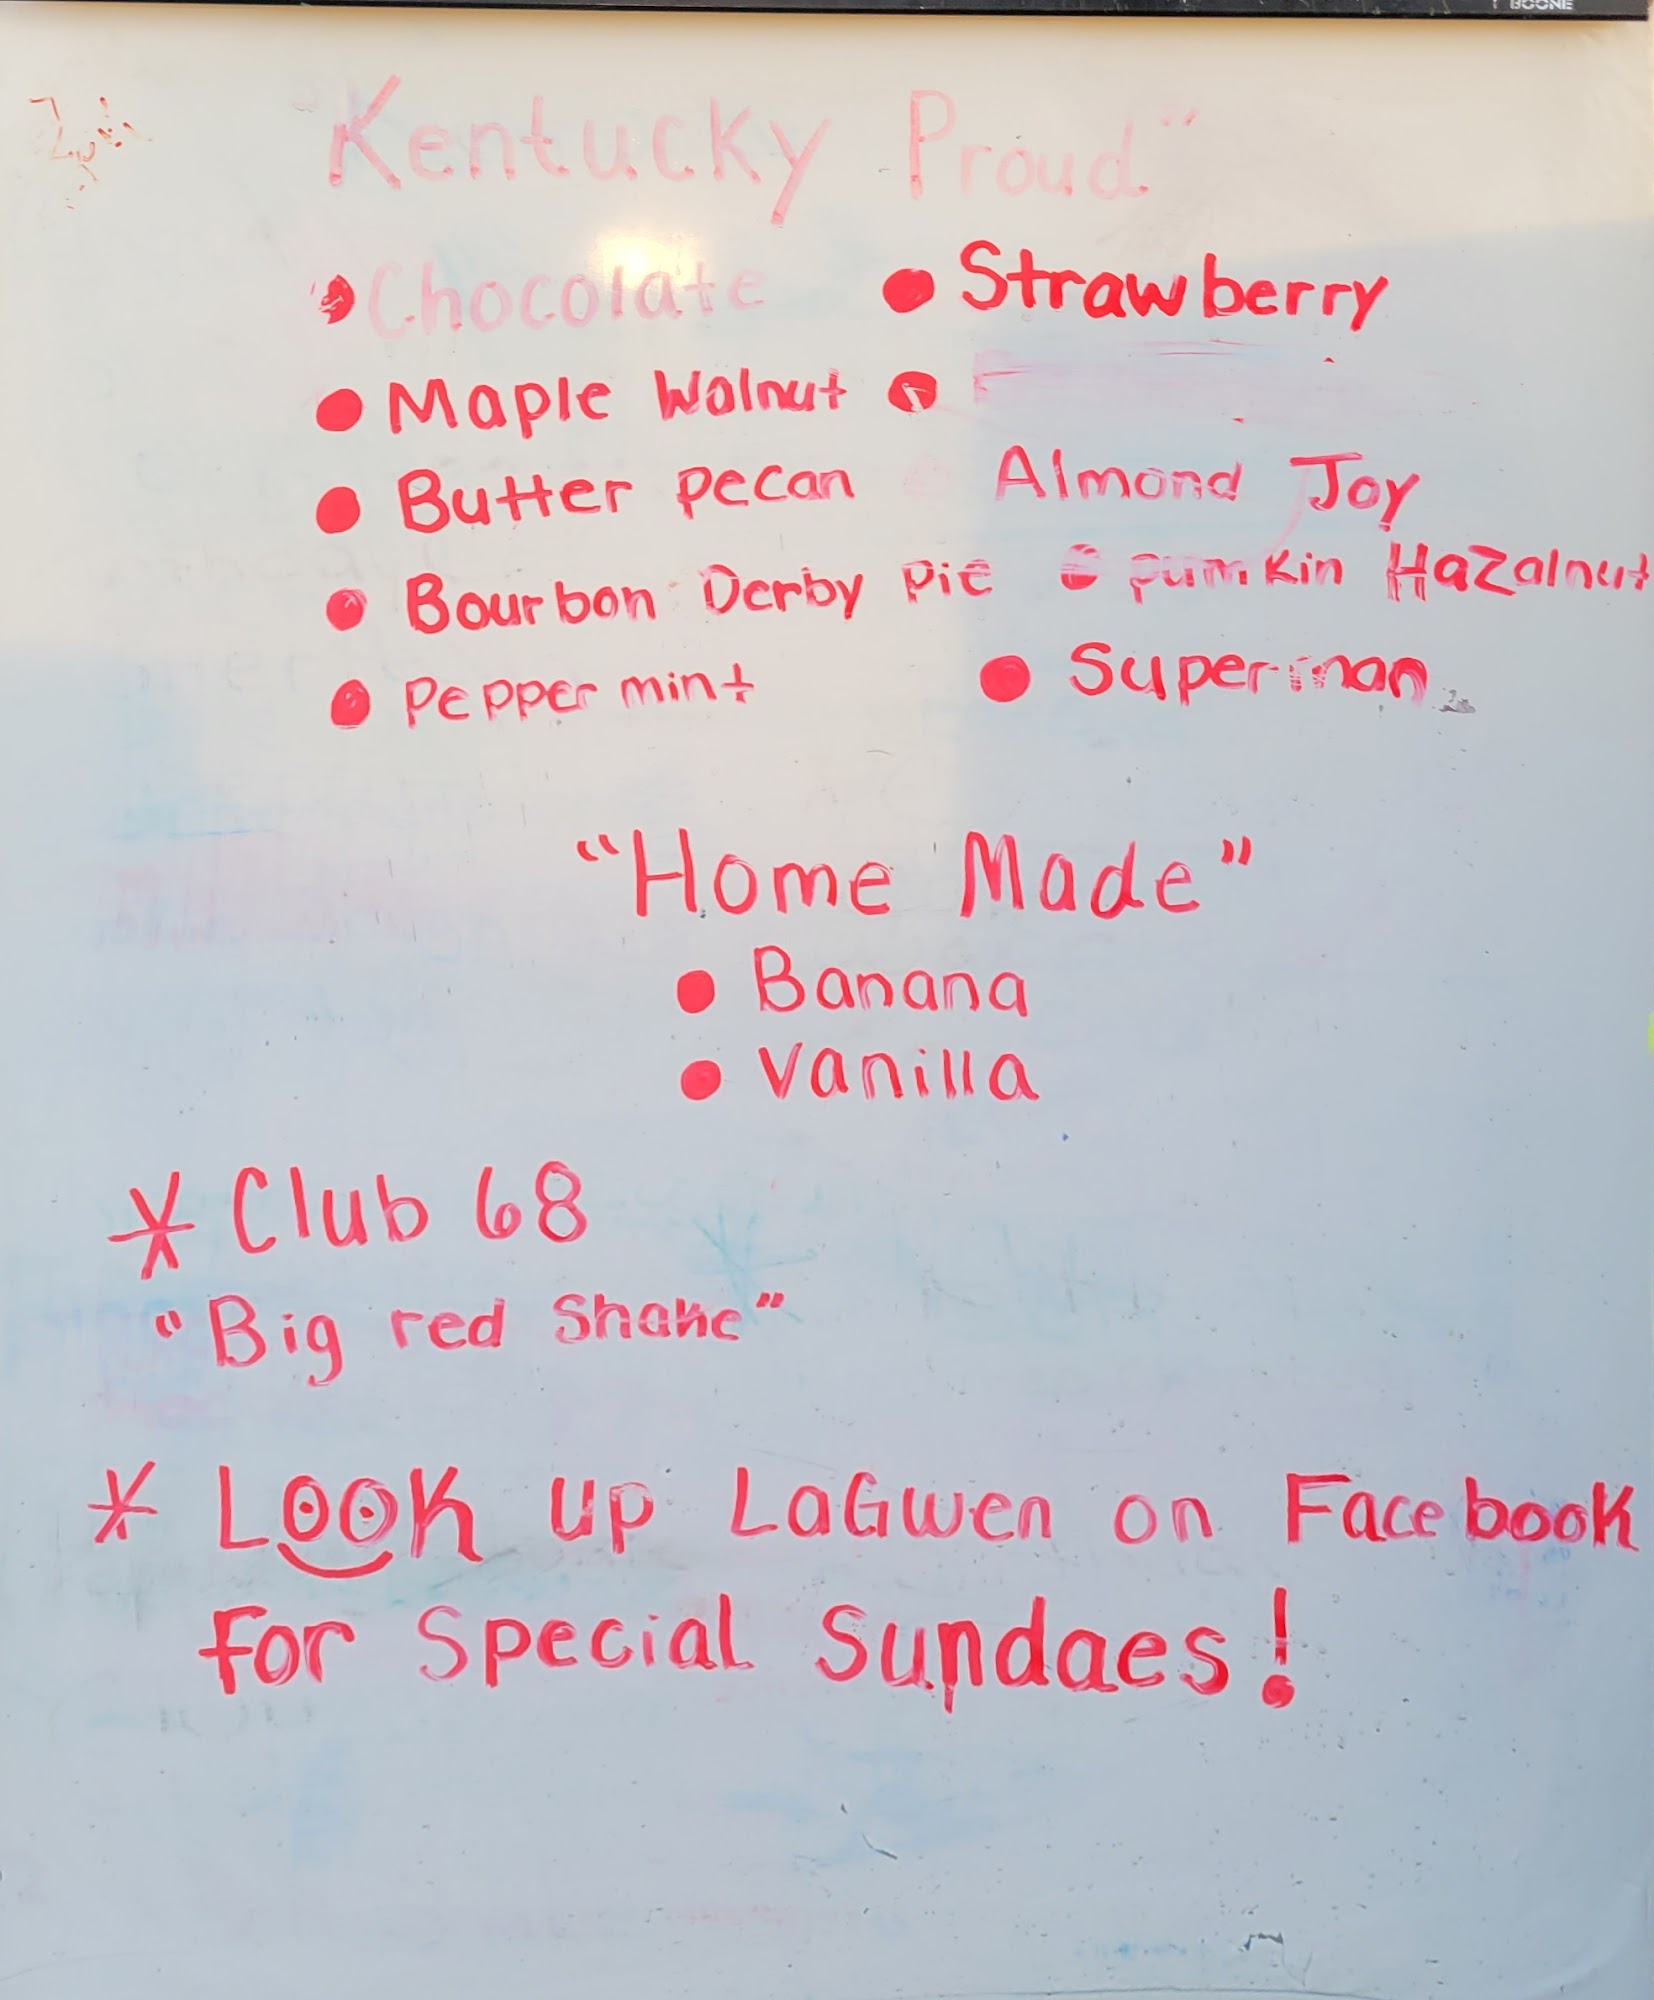 BOONE
"Kentucky Proud"
• Chocolate • Strawberry
• Maple Walnut •
• Butter pecan Almond Joy
• Bourbon Derby pie • pumkin Hazalnut
• Peppermint • Superman
"Home Made"
• Banana
• Vanilla
* Club 68
"Big red Shake"
* Look up LaGwen on Facebook
for Special Sundaes!